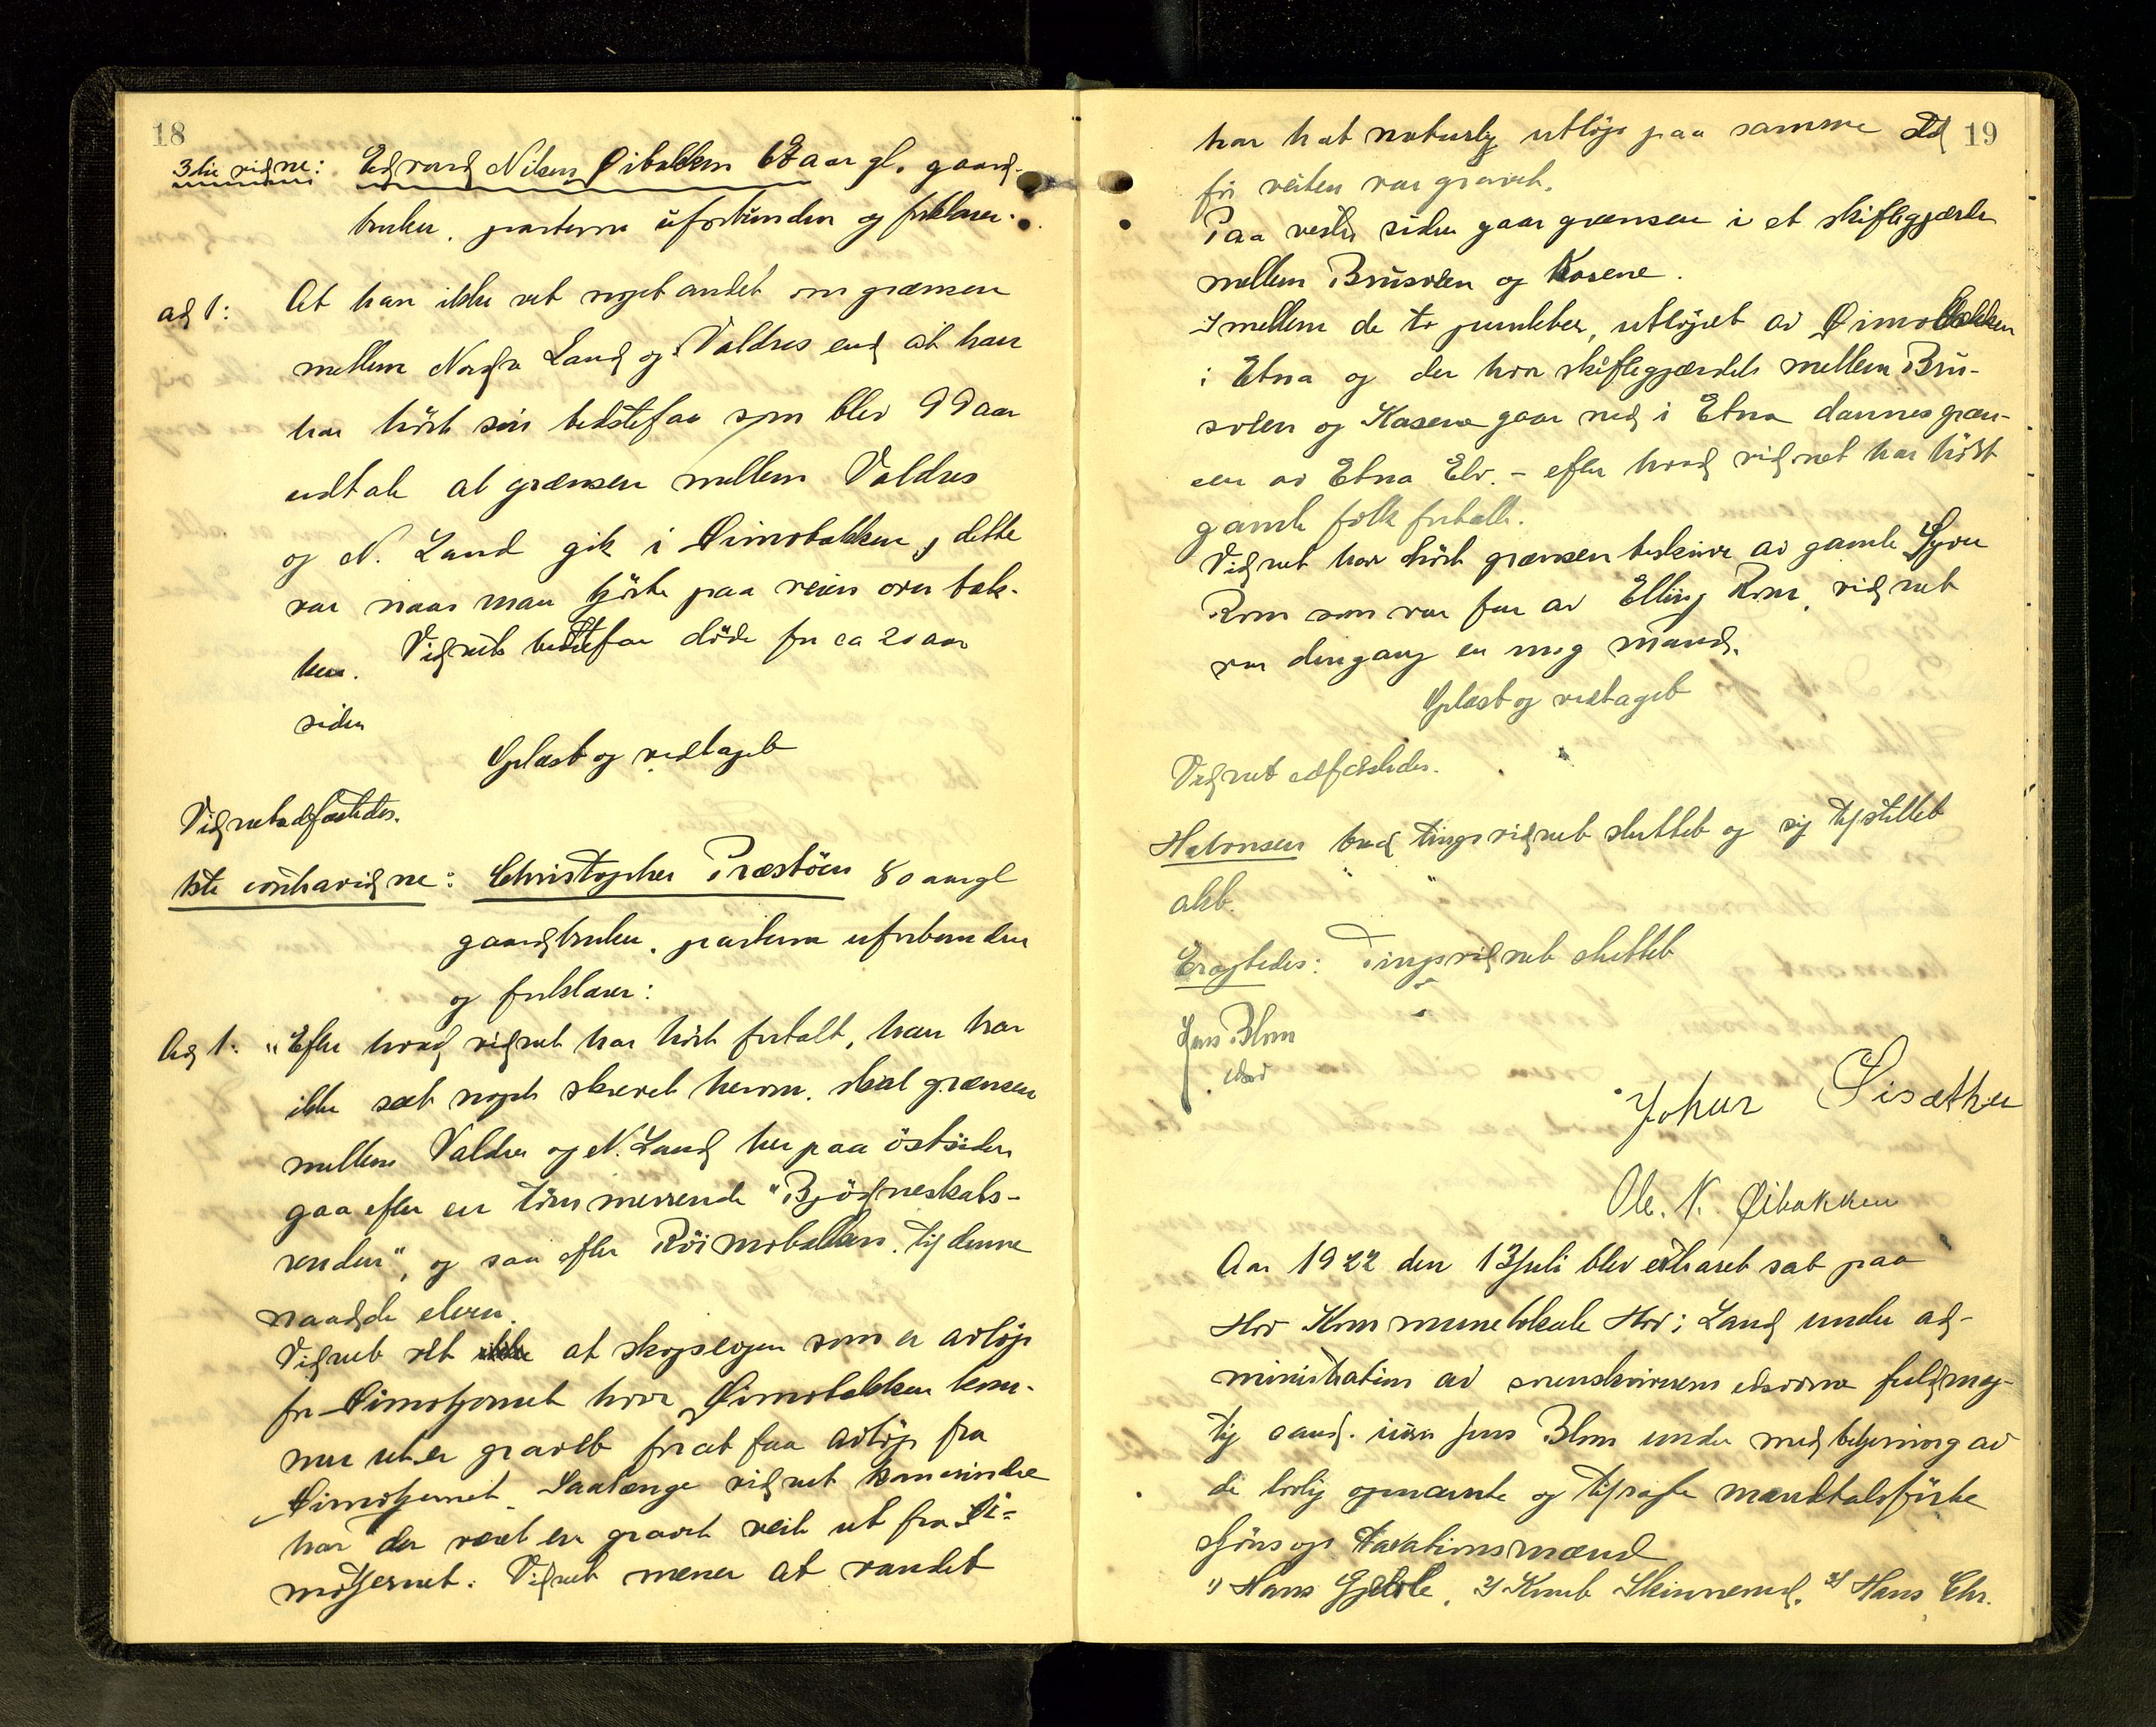 18
3die vidne: Edvard Nilsen Øibakken 68 aar gl. gaard-
bruker. parterne uforbunden og forklarer.
ad 1: At han ikke vet noget andet om grænsen
mellem Nordre Land og Valdres end at han
har hørt sin bedstefar som blev 99 aar
udtale at grænsen mellem Valdres
og N. Land gik i Øimobakken, dette
var naar man kjørte paa veien over bæk-
ken. Vidnets bedstefar døde for ca 20 aar
siden
Oplæst og vedtaget
Vidnet edfæstedes.
1ste contravidne: Christopher Præstøen 80 aar gl
gaardbruker. parterne uforbunden
og forklarer:
Ad 1: "Efter hvad vidnet har hørt fortalt, han har
ikke sæt noget skrevet herom. skal grænsen
mellem Valdres og N. Land her paa østsiden
gaa efter en tømmerrende "Bjødneskals-
renden", og saa efter Röimobakken. til denne
naadde elven.
Vidnet vet ikke at skogseigen som er avløp
fra Øimotjernet hvor Øimobakken kom-
mer ut er gravet for at faa avløp fra
Øimotjernet. Saalænge vidnet kan erindre
har der været en gravet veit ut fra Øi-
motjernet. Vidnet mener at vandet
19
har hat naturlig utløp paa samme sted
før veiten var gravet.
Paa vestre siden gaar grænsen i et skiftegjærde
mellem Brusvolen og Kasene.
Imellem de to punkter, utløpet av Øimobakken
i Etna og der hvor skiftegjærdet mellem Bru-
svolen og Kasene gaar ned i Etna dannes græn-
sen av Etna Elv. - efter hvad vidnet har hørt
gamle folk fortælle.
Vidnet har hørt grænsen beskrive av gamle Syver
Rom som var far av Elling Rom, vidnet
var dengang en ung mand.
Oplæst og vedtaget
Vidnet edfæstedes.
Halvorsen bad tingsvidnet sluttet og sig tilstillet
akt.
Eragtedes: Tingsvidnet sluttet
Jens Blom
edsv
Johan Lisæther
Ole. N. Øibakken
Aar 1922 den 13 Juli blev extraret sat paa
Hov Kommunelokale Hov i Land under ad-
ministration av sorenskriverens edsvorne fuldmæg-
tig cand. jur. Jens Blom under medbetjening av
de lovlig opnævnte og tilsagte mandtalsførte
skjøns og taxationsmænd
1) Hans Gjelvle, 2) Knut Skinnerud. 3) Hans Chr.